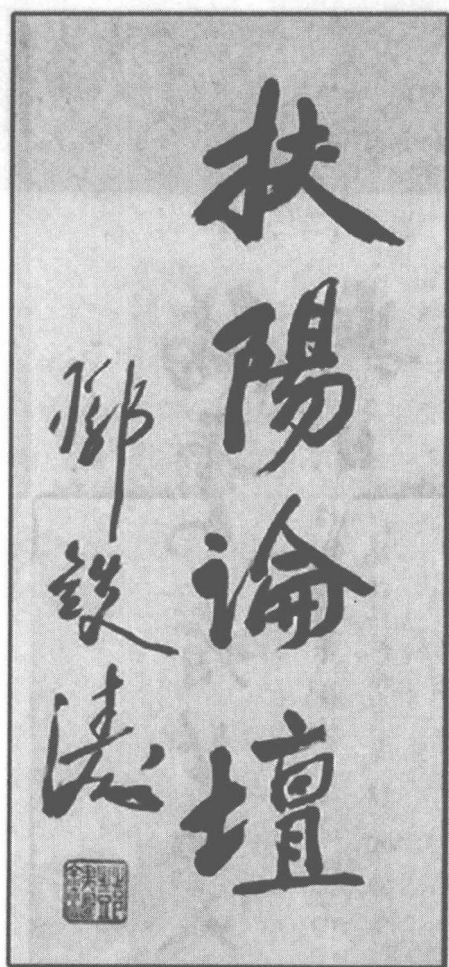 扶陽論壇
鄧鐵濤